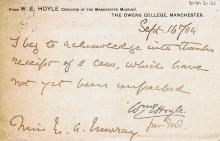 FROM W. E. HOYLE (DIRECTOR OF THE MANCHESTER MUSEUM),
THE OWENS COLLEGE, MANCHESTER.
Sept. 16 / 09
I beg to acknowledge with thanks
receipt of 11 cases, which have
not yet been unpacked
Wm E Hoyle.
Miss M. A. Murray